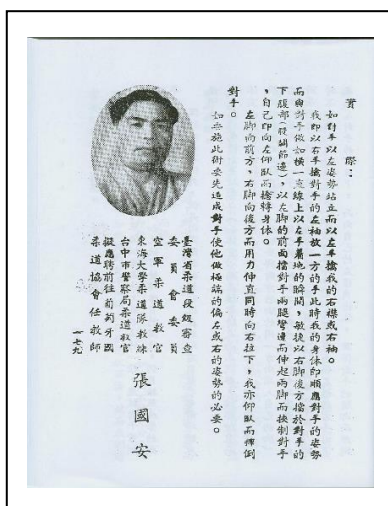 實際：
如對手以左姿勢站立而以左手擒我的右襟或右袖。
我即以右手擒對手的左袖放一方的手此時我的身体即順應對手的姿勢
而與對手做如橫一直線上以左手着地的瞬間，敏捷以右脚後方擋於對手的
下腹部（股關節邊），以左脚的前面擋對手兩腿彎邊而伸起兩脚而挾制對手
，自己即向左仰臥而捲轉身体。
左脚向前方，右脚向後方而用力伸直同時向右拉下，我亦仰臥而摔倒
對手。
如無施此術要先造成對手使他做極端的偏左或右的姿勢的必要。
臺灣省柔道段級審查
委員會委員
空軍柔道教官
東海大學柔道隊教練
台中市警察局柔道教官
擬應聘前往葡萄牙國
柔道協會任教師
張國安
一七九